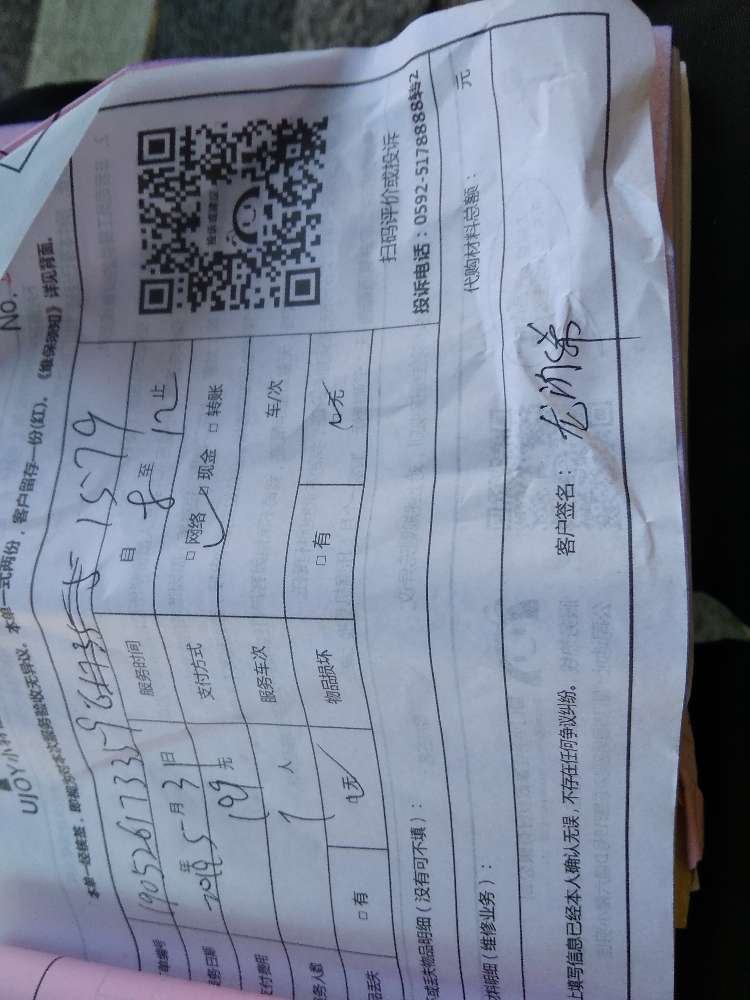 NO.
UJOY小羽佳
本单一经核签，即视为对本次服务验收无异议。本单一式两份，客户留存一份(红)，《维保须知》详见背面。
单编号
务日期 2019年5月31日 服务时间 自8至12止
支付费用 199元 支付方式 □网络 □现金 □转账
务人数 1人 服务车次 车/次
品丢失 □有 无 物品损坏 □有 无
投诉或建议
扫码评价或投诉
投诉电话：0592-5178888转2
或丢失物品明细（没有可不填）：
料明细（维修业务）： 代购材料总额： 元
上填写信息已经本人确认无误，不存在任何争议纠纷。 客户签名：